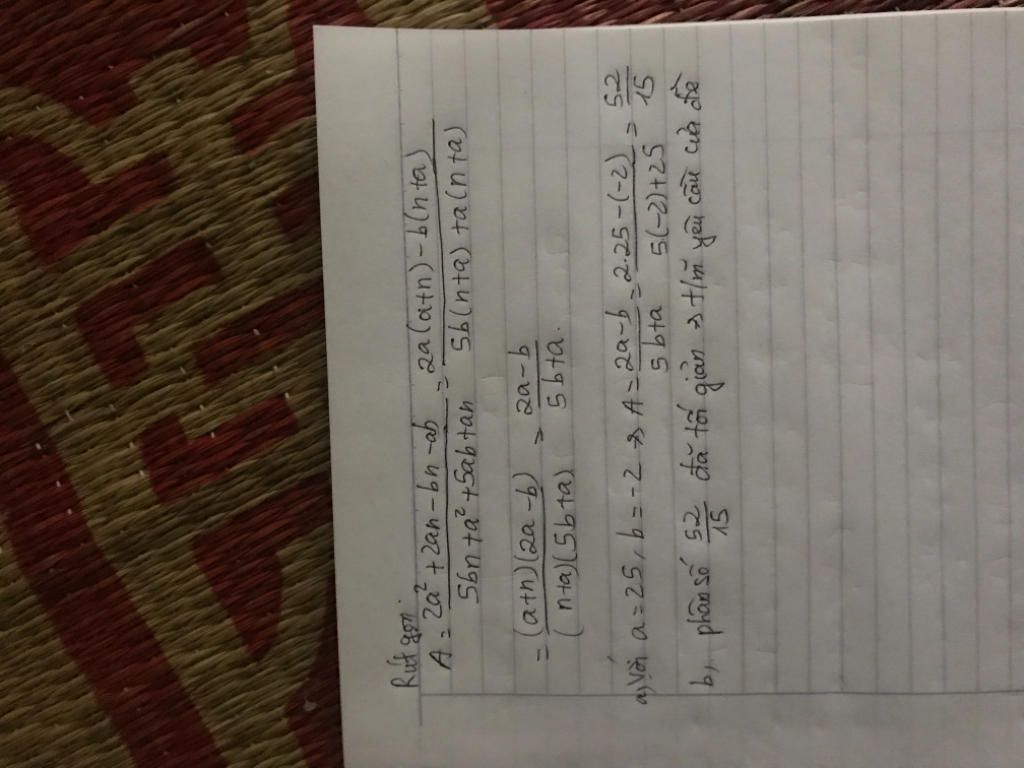 Rút gọn:
A = \frac{2a^2 + 2an - bn - ab}{5bn + a^2 + 5ab + an} = \frac{2a(a+n) - b(n+a)}{5b(n+a) + a(n+a)}
= \frac{(a+n)(2a-b)}{(n+a)(5b+a)} = \frac{2a-b}{5b+a}.
a, Với a = 25, b = -2 => A = \frac{2a-b}{5b+a} = \frac{2.25-(-2)}{5(-2)+25} = \frac{52}{15}
b, phân số \frac{52}{15} đã tối giản => t/mãn yêu cầu của đề